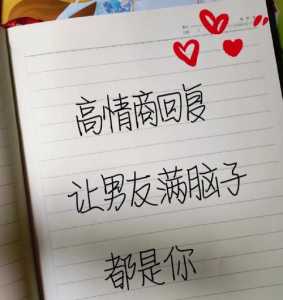 高情商回复
让男友满脑子
都是你